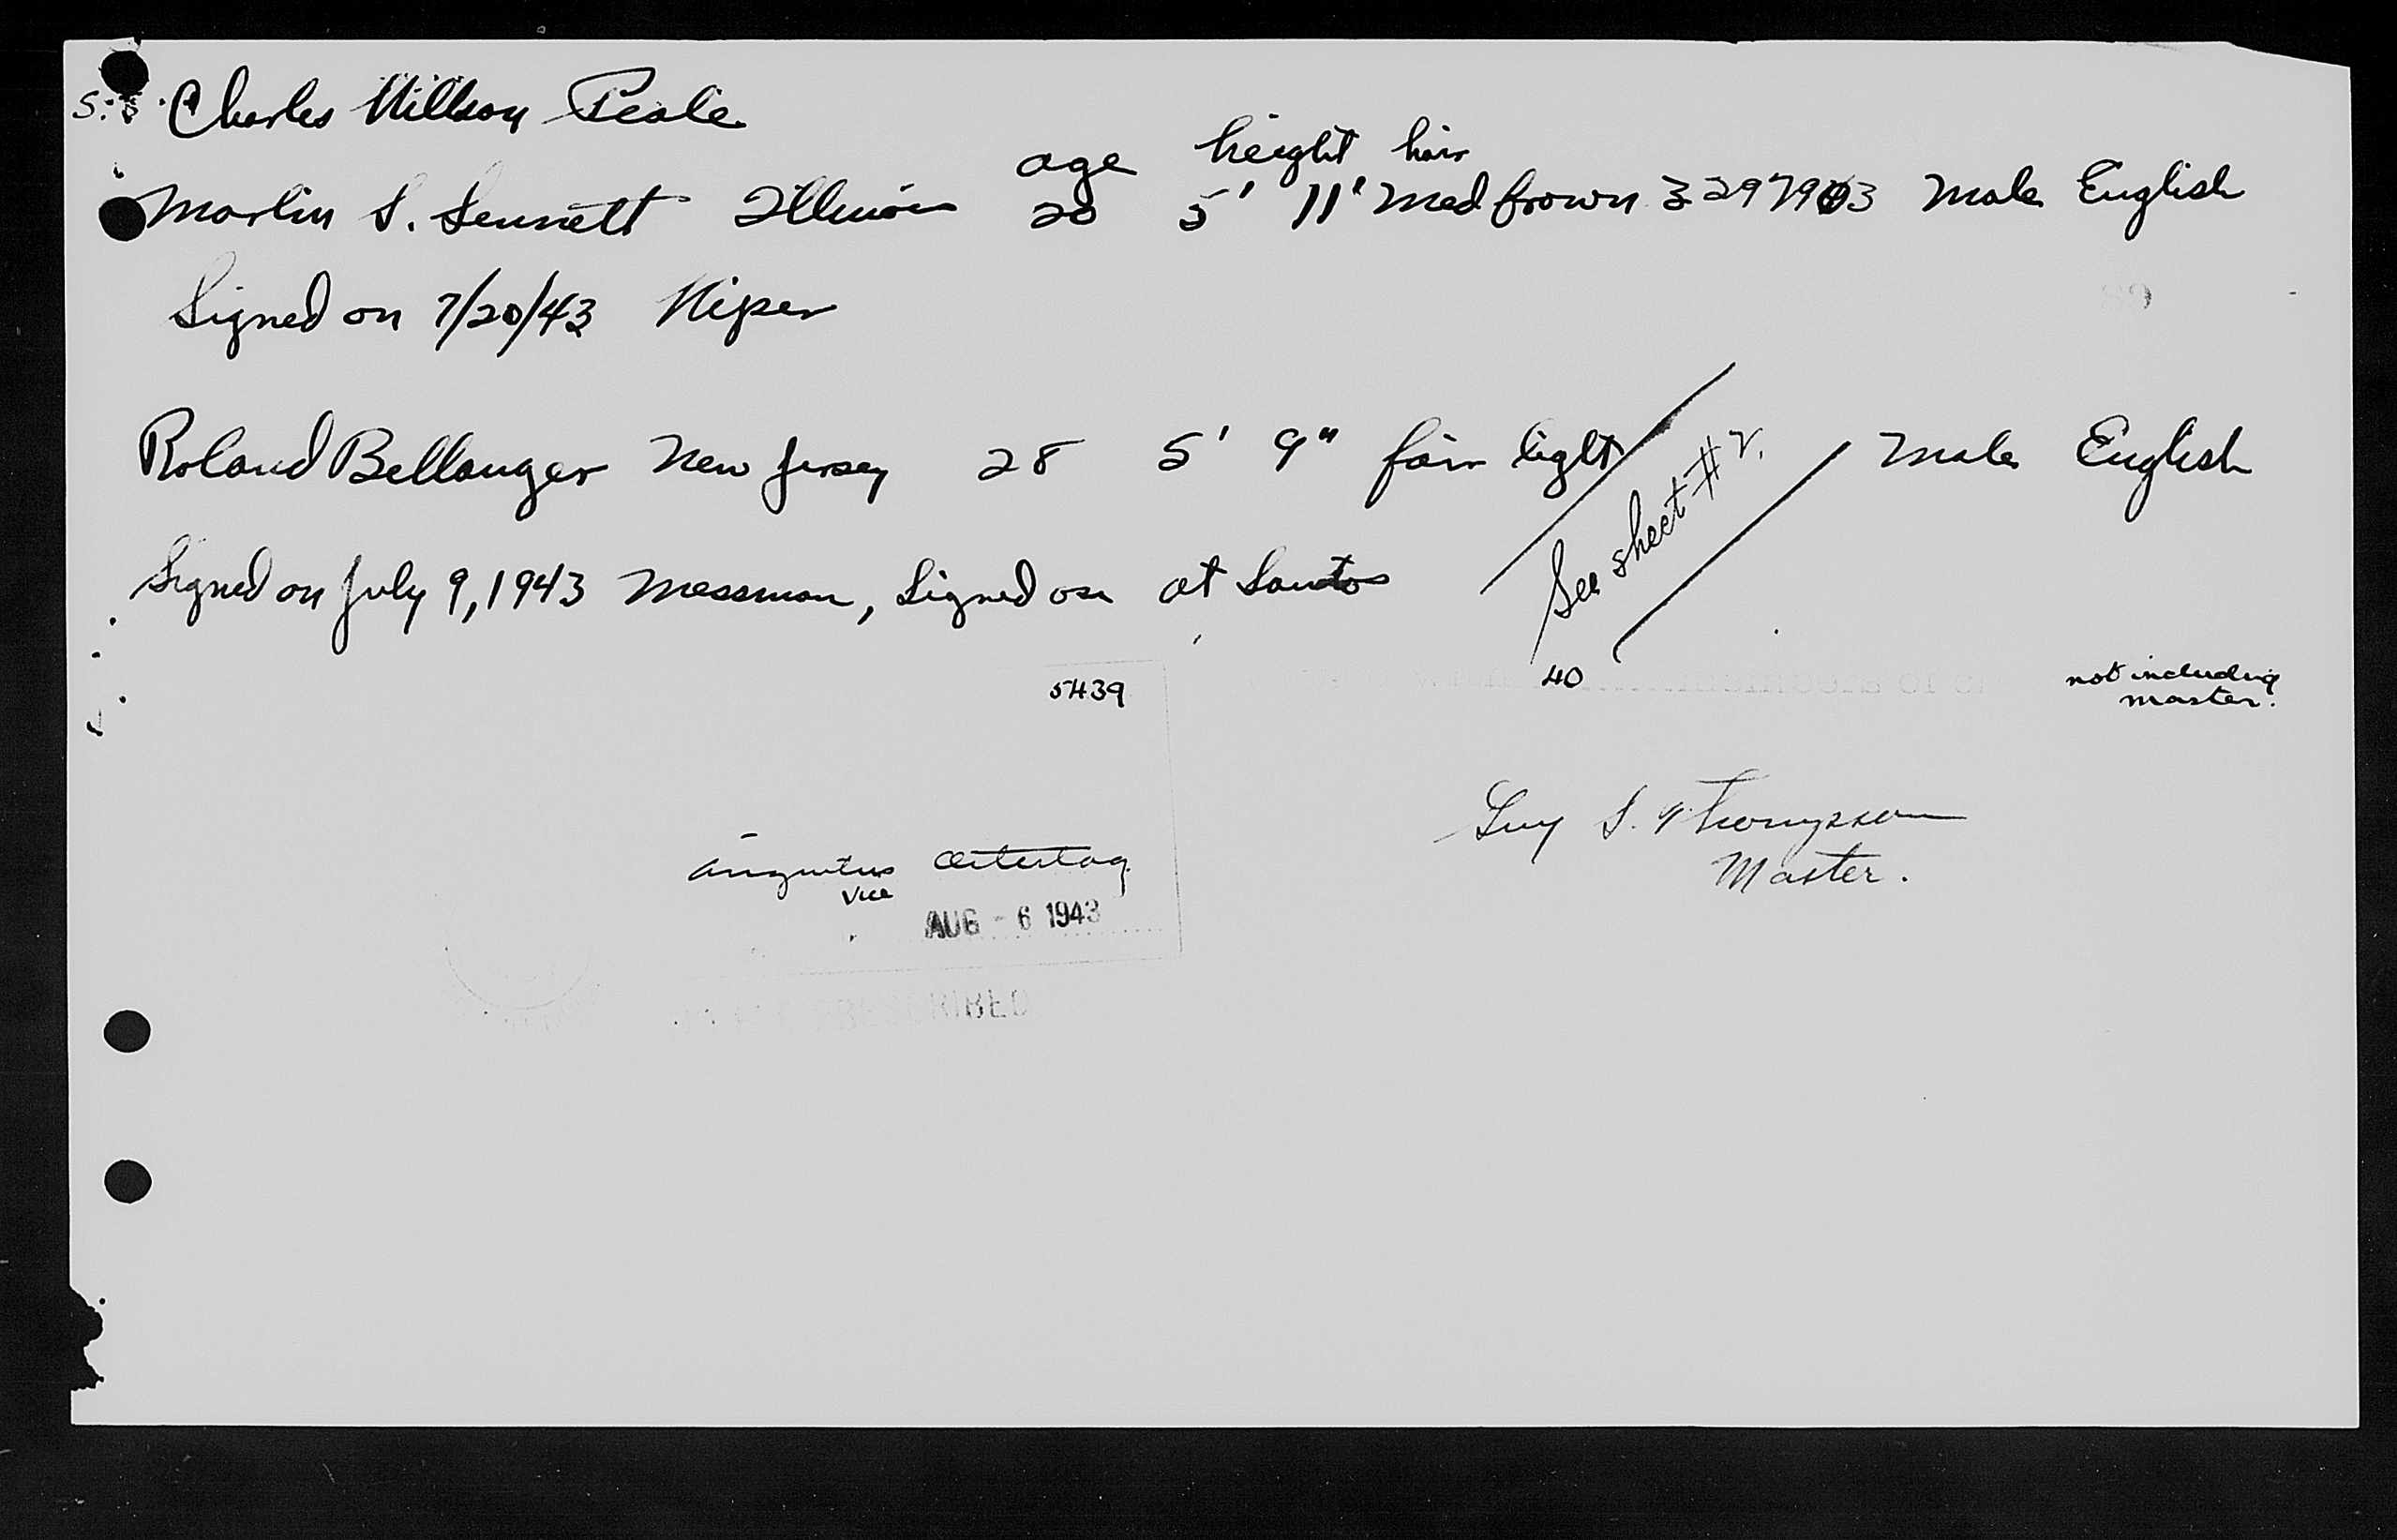 S.S. Charles Willson Peale
age height hair
Marlin S. Sennett Illinois 20 5' 11" Med brown Z 297903 Male English
Signed on 7/20/43 Wiper
Roland Bellanger New Jersey 28 5' 9" fair light Male English
See sheet #2.
Signed on July 9, 1943 Messman, Signed on at Santos
5439 40 not including
master.
Guy S. Thompson
Master.
Augustus Ostertag
Vice
AUG - 6 1943